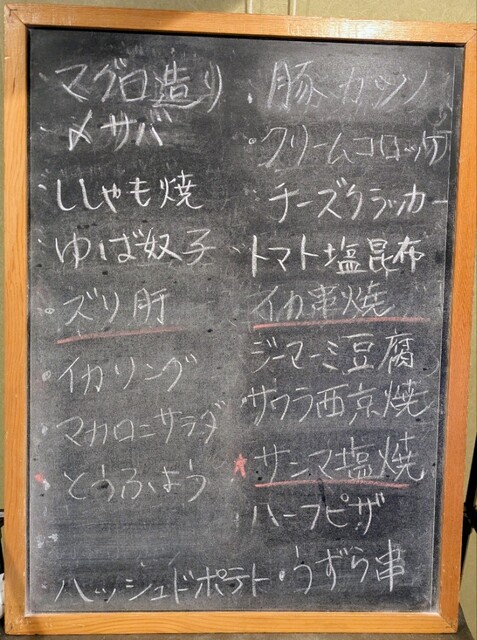 マグロ造り
〆サバ
ししゃも焼
ゆば奴子
ズリ肝
イカリング
マカロニサラダ
とうふよう
ハッシュドポテト
豚カツ
クリームコロッケ
チーズクラッカー
トマト塩昆布
イカ串焼
ジーマーミ豆腐
サワラ西京焼
サンマ塩焼
ハーフピザ
うずら串